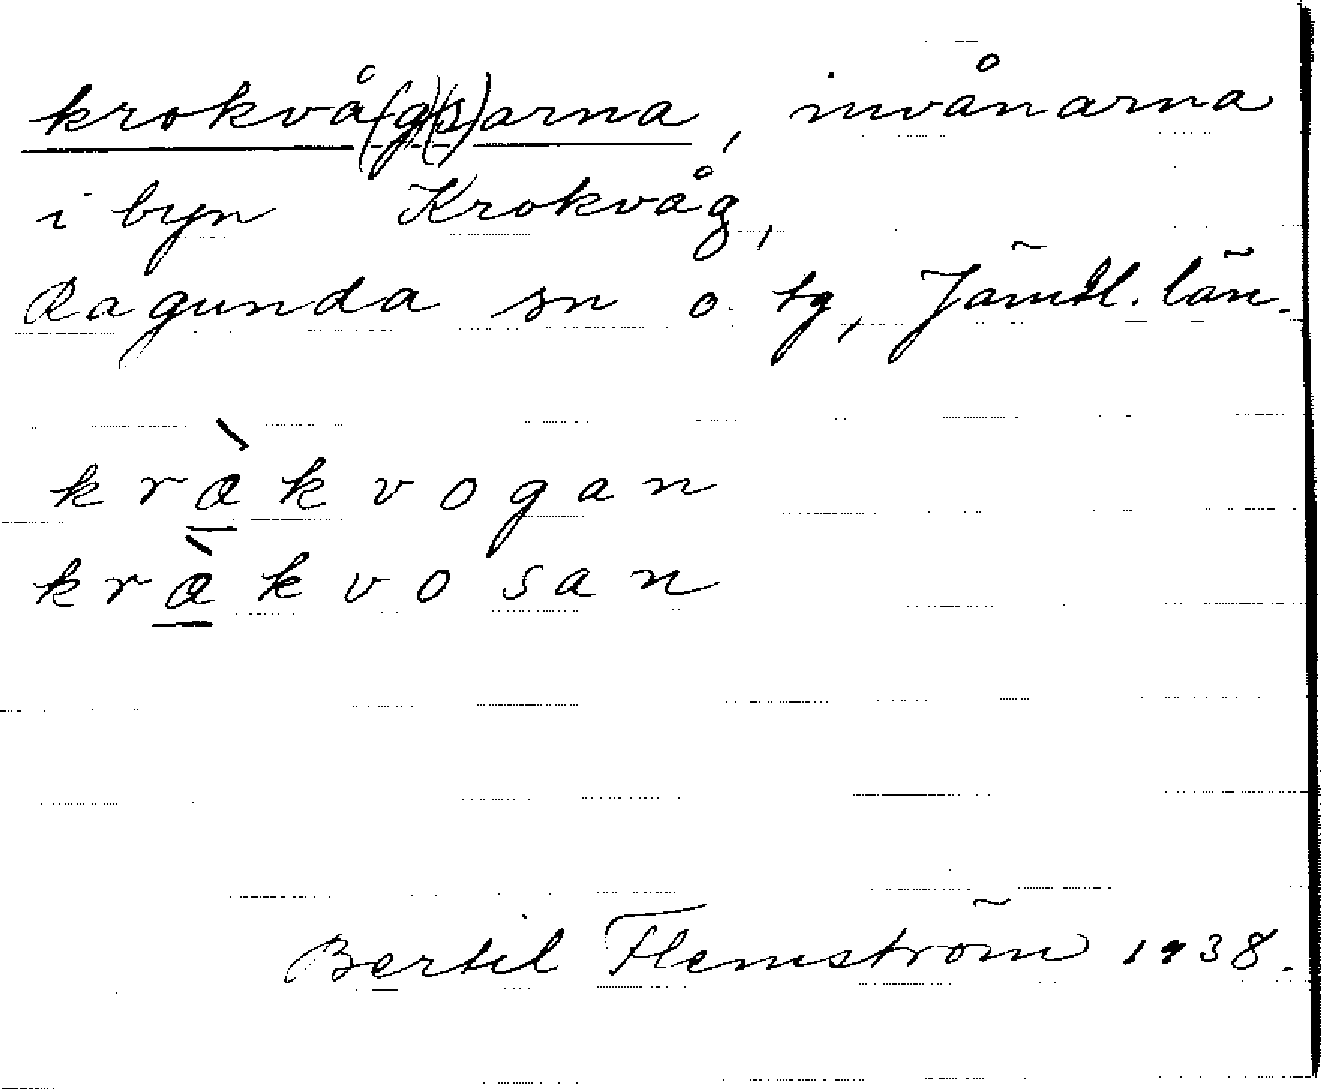 krokvå(g)(s)arna, invånarna
i byn Krokvåg,
Ragunda sn o. tg, Jämtl. län.
kræ̀kvogan
kræ̀kvosan
Bertil Flemström 1938.